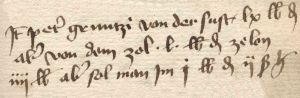 It peter gruntzi von der sust lx lb d
aber von dem zol l lb d ze lon
iiii lb aber sol man im i lb d ii ß